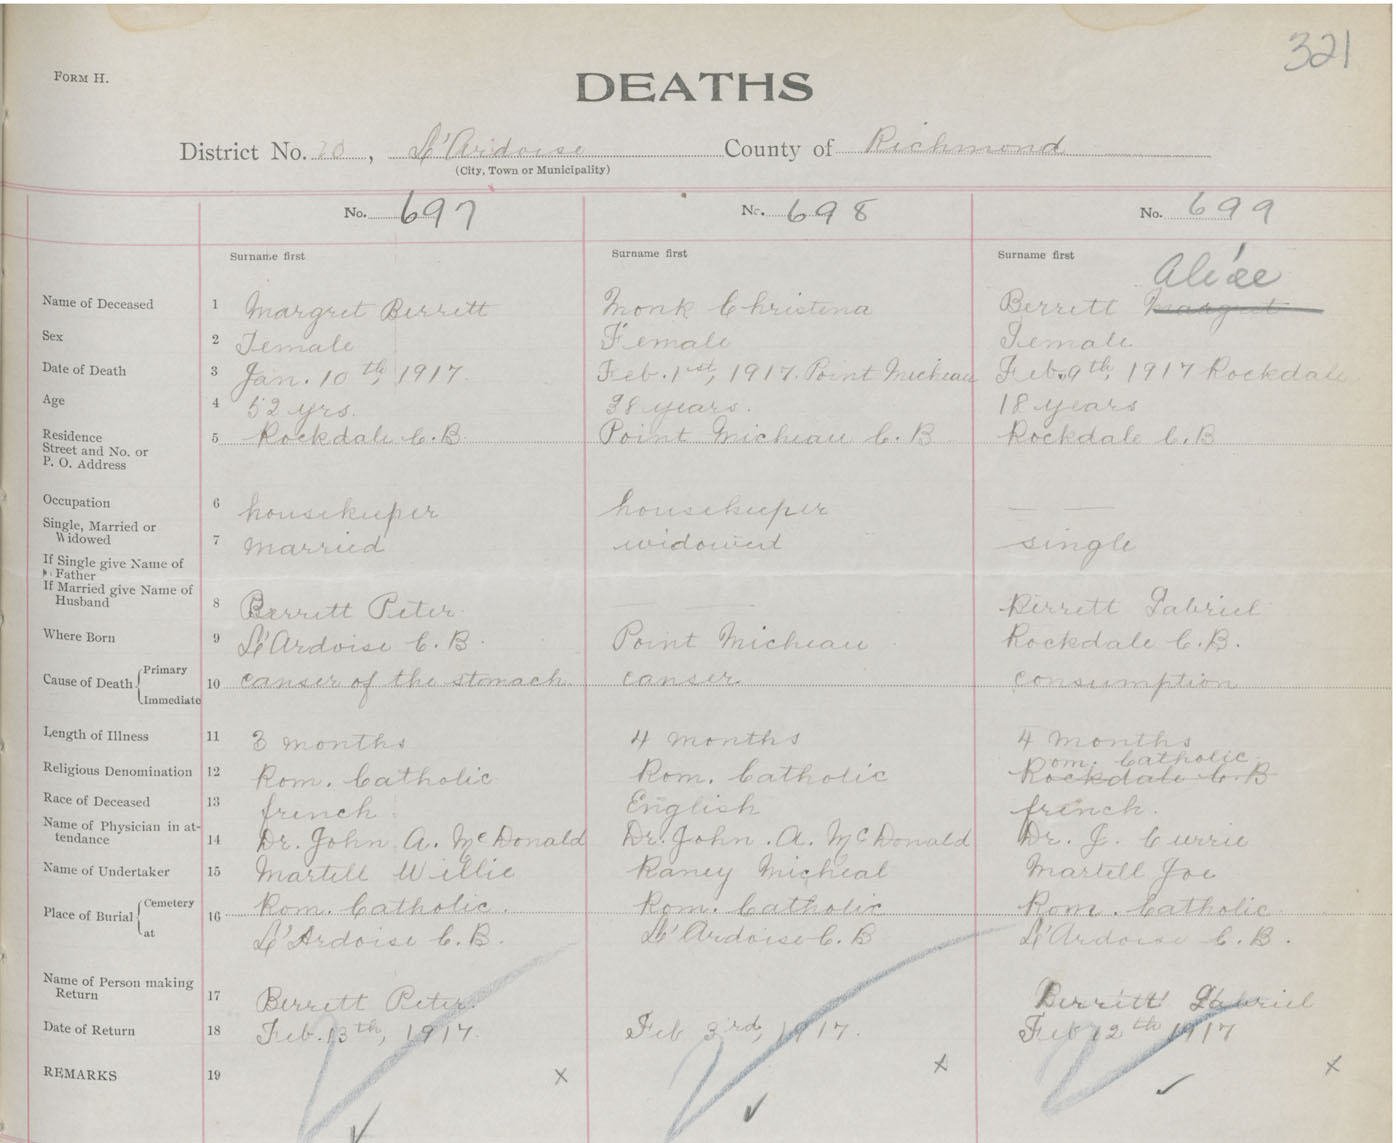 321
FORM H.
DEATHS
District No. 20, L'Ardoise County of Richmond
(City, Town or Municipality)
No. 697 No. 698 No. 699
Surname first Surname first Surname first
Aliee
Name of Deceased 1 Margret Berrett Monk Christena Berrett Maagret
Sex 2 Female Female Female
Date of Death 3 Jan. 10th, 1917 Feb. 1st, 1917. Point Micheau Feb. 9th, 1917 Rockdale
Age 4 52 yrs. 38 years. 18 years
Residence 5 Rockdale C.B. Point Micheau C.B Rockdale C.B
Street and No. or
P. O. Address
Occupation 6 housekeeper housekeeper
Single, Married or
Widowed 7 married widowed single
If Single give Name of
Father
If Married give Name of
Husband 8 Berrett Peter Berrett Gabriel
Where Born 9 L'Ardoise C.B. Point Micheau Rockdale C.B.
Primary
Cause of Death 10 canser of the stomach canser consumption
Immediate
Length of Illness 11 3 months 4 months 4 months
Rom. Catholic
Religious Denomination 12 Rom. Catholic Rom. Catholic Rockdale C.B
Race of Deceased 13 french English french.
Name of Physician in at-
tendance 14 Dr. John A. McDonald Dr. John. A. McDonald Dr. J. Currie
Name of Undertaker 15 Martell Willie Raney Micheal Martell Joe
Cemetery
Place of Burial 16 Rom. Catholic. Rom. Catholic Rom. Catholic
at L'Ardoise C.B. L'Ardoise C.B L'Ardoise C.B.
Name of Person making
Return 17 Berrett Peter. Berrett Gabriel
Date of Return 18 Feb. 13th, 1917. Feb 3rd, 1917. Feb 12th 1917
REMARKS 19 x x x